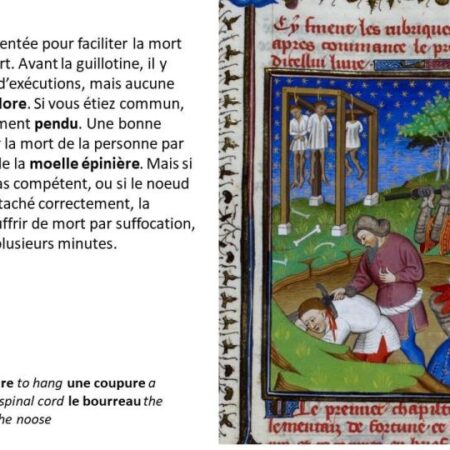 entée pour faciliter la mort
rt. Avant la guillotine, il y
d'exécutions, mais aucune
lore. Si vous étiez commun,
ment pendu. Une bonne
r la mort de la personne par
de la moelle épinière. Mais si
as compétent, ou si le noeud
taché correctement, la
uffrir de mort par suffocation,
plusieurs minutes.
re to hang une coupure a
spinal cord le bourreau the
he noose
Cy finent les rubriques
apres commance le pre
dicellui livre
Le premier chapit
de fortune ce